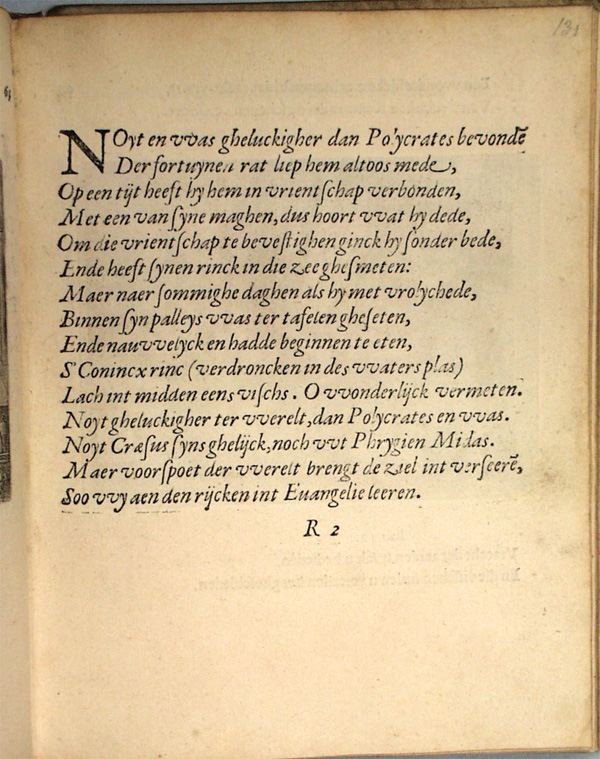 131
NOyt en vvas gheluckigher dan Polycrates bevondē
Der fortuynen rat liep hem altoos mede,
Op een tijt heeft hy hem in vrientschap verbonden,
Met een van syne maghen, dus hoort vvat hy dede,
Om die vrientschap te bevestighen ginck hy sonder bede,
Ende heeft synen rinck in die zee ghesmeten:
Maer naer sommighe daghen als hy met vrolychede,
Binnen syn palleys vvas ter tafelen gheseten,
Ende nauvvelyck en hadde beginnen te eten,
S'Conincx rinc (verdroncken in des vvaters plas)
Lach int midden eens vischs. O vvonderlijck vermeten.
Noyt gheluckigher ter vverelt, dan Polycrates en vvas.
Noyt Cræsus syns ghelijck, noch vvt Phrygien Midas.
Maer voorspoet der vverelt brengt de ziel int verseerē,
Soo vvy aen den rijcken int Euangelie leeren.
R 2